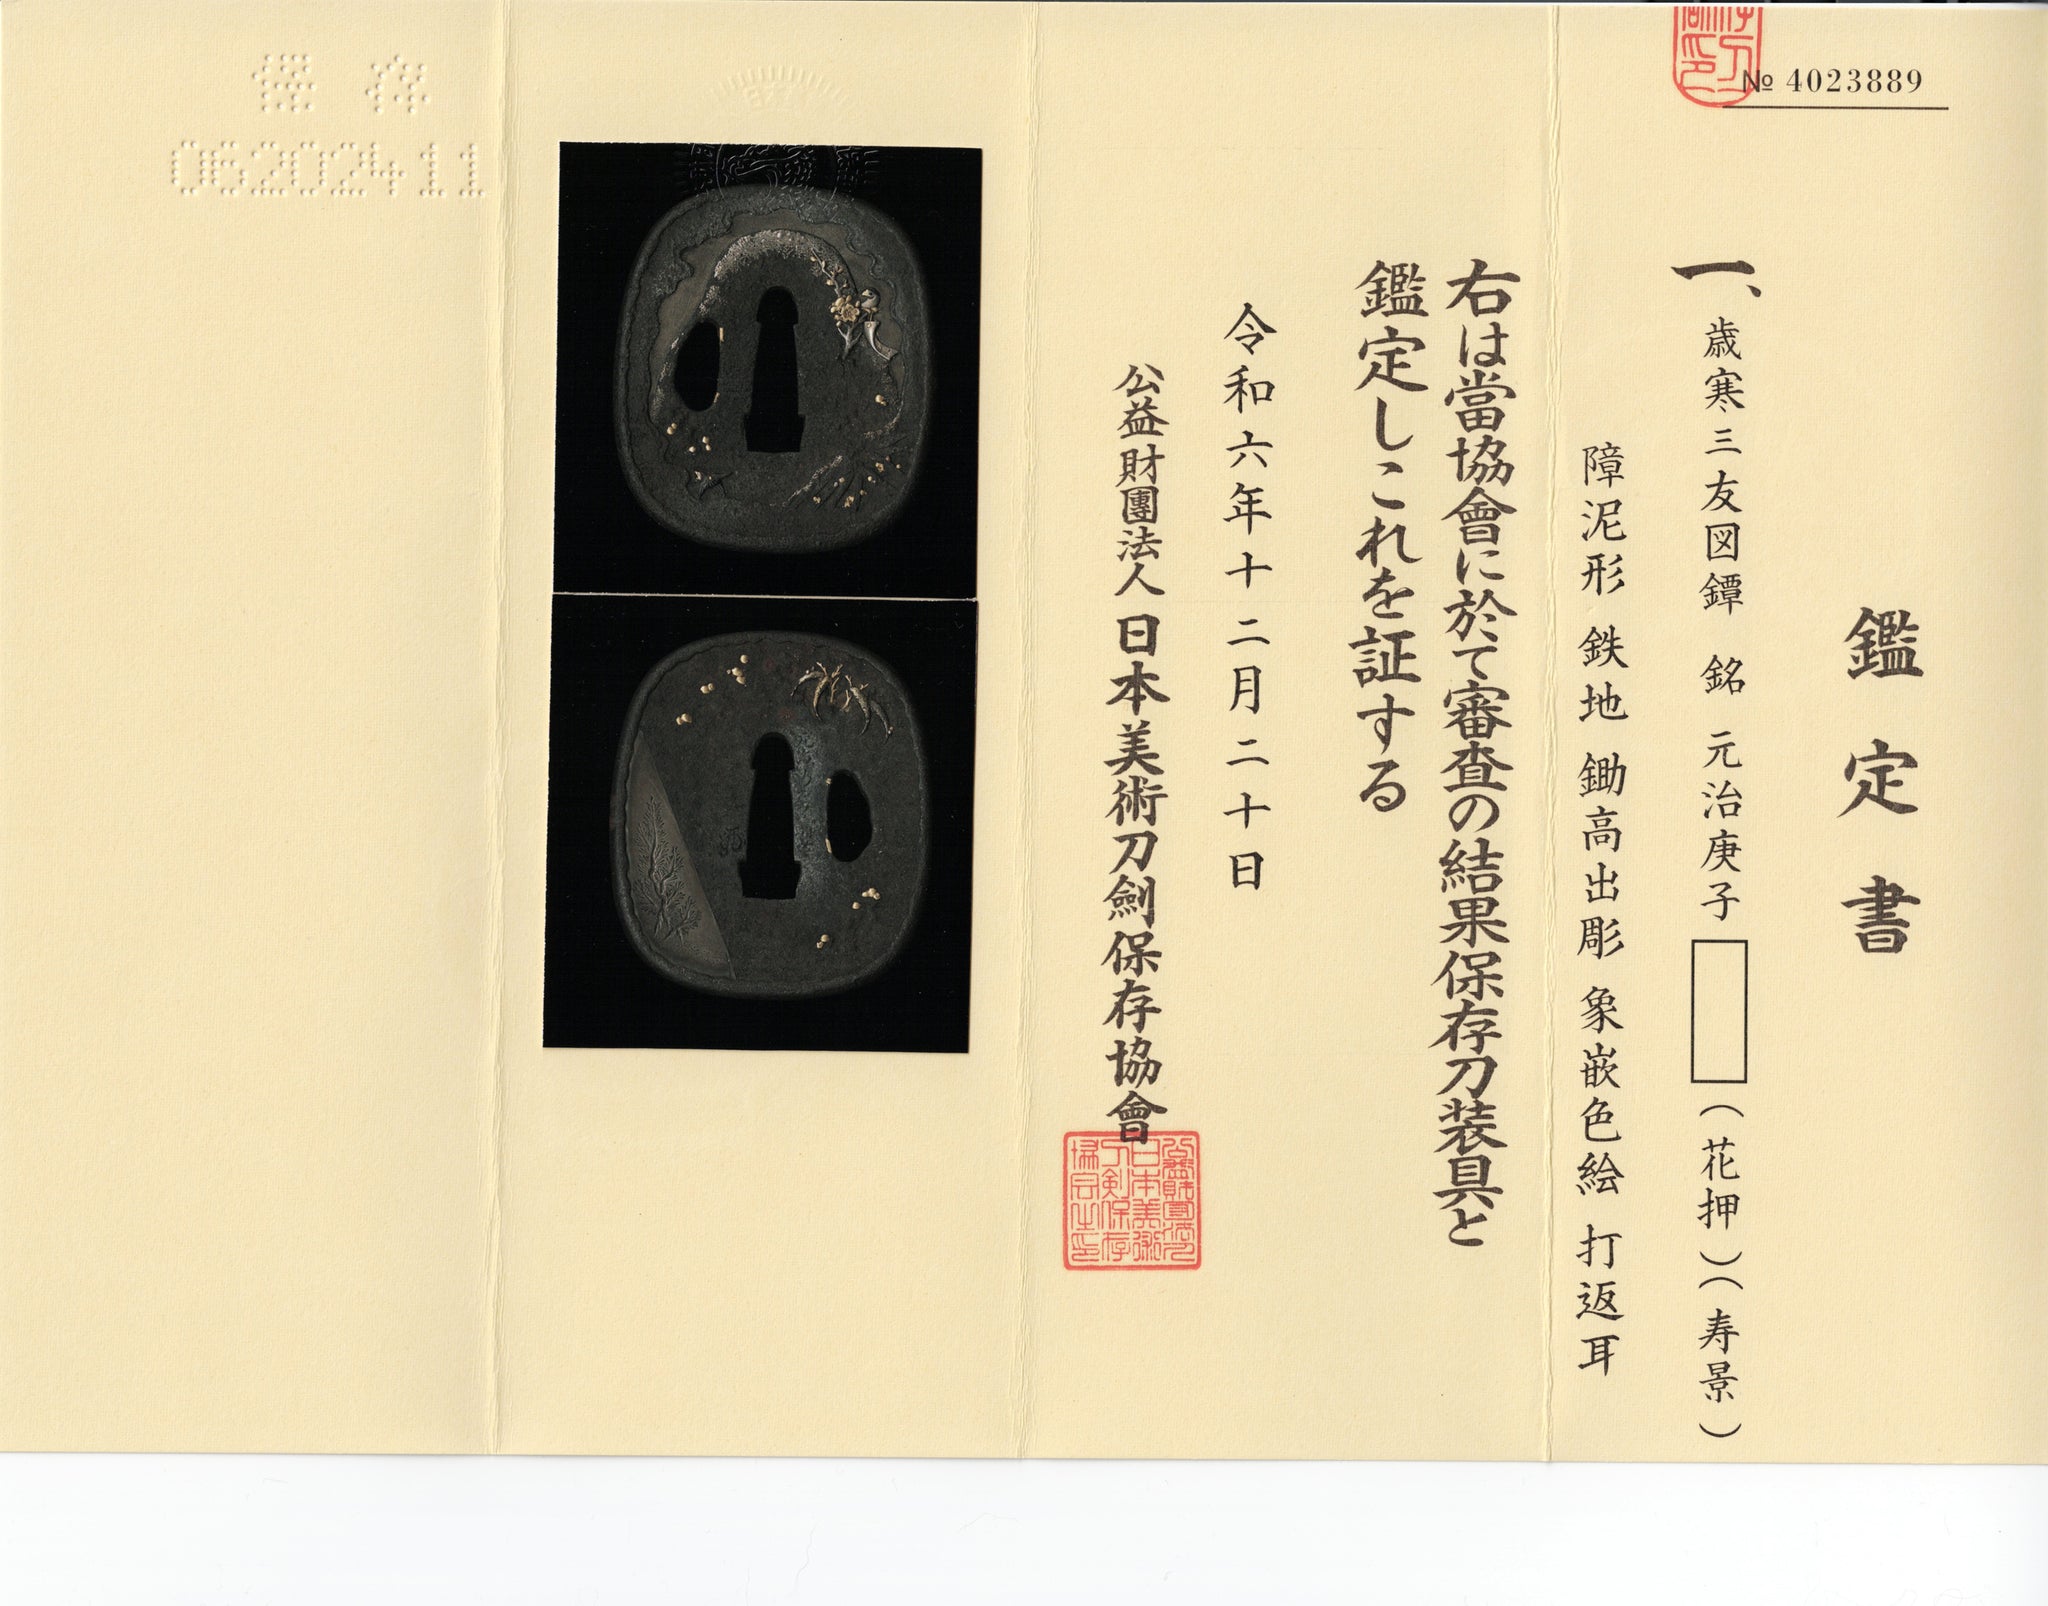 № 4023889
鑑定書
一、歳寒三友図鐔 銘 元治庚子 （花押）（寿景）
障泥形 鉄地 鋤高出彫 象嵌色絵 打返耳
右は當協會に於て審査の結果保存刀装具と
鑑定しこれを証する
令和六年十二月二十日
公益財團法人 日本美術刀劍保存協會
保存
06202411